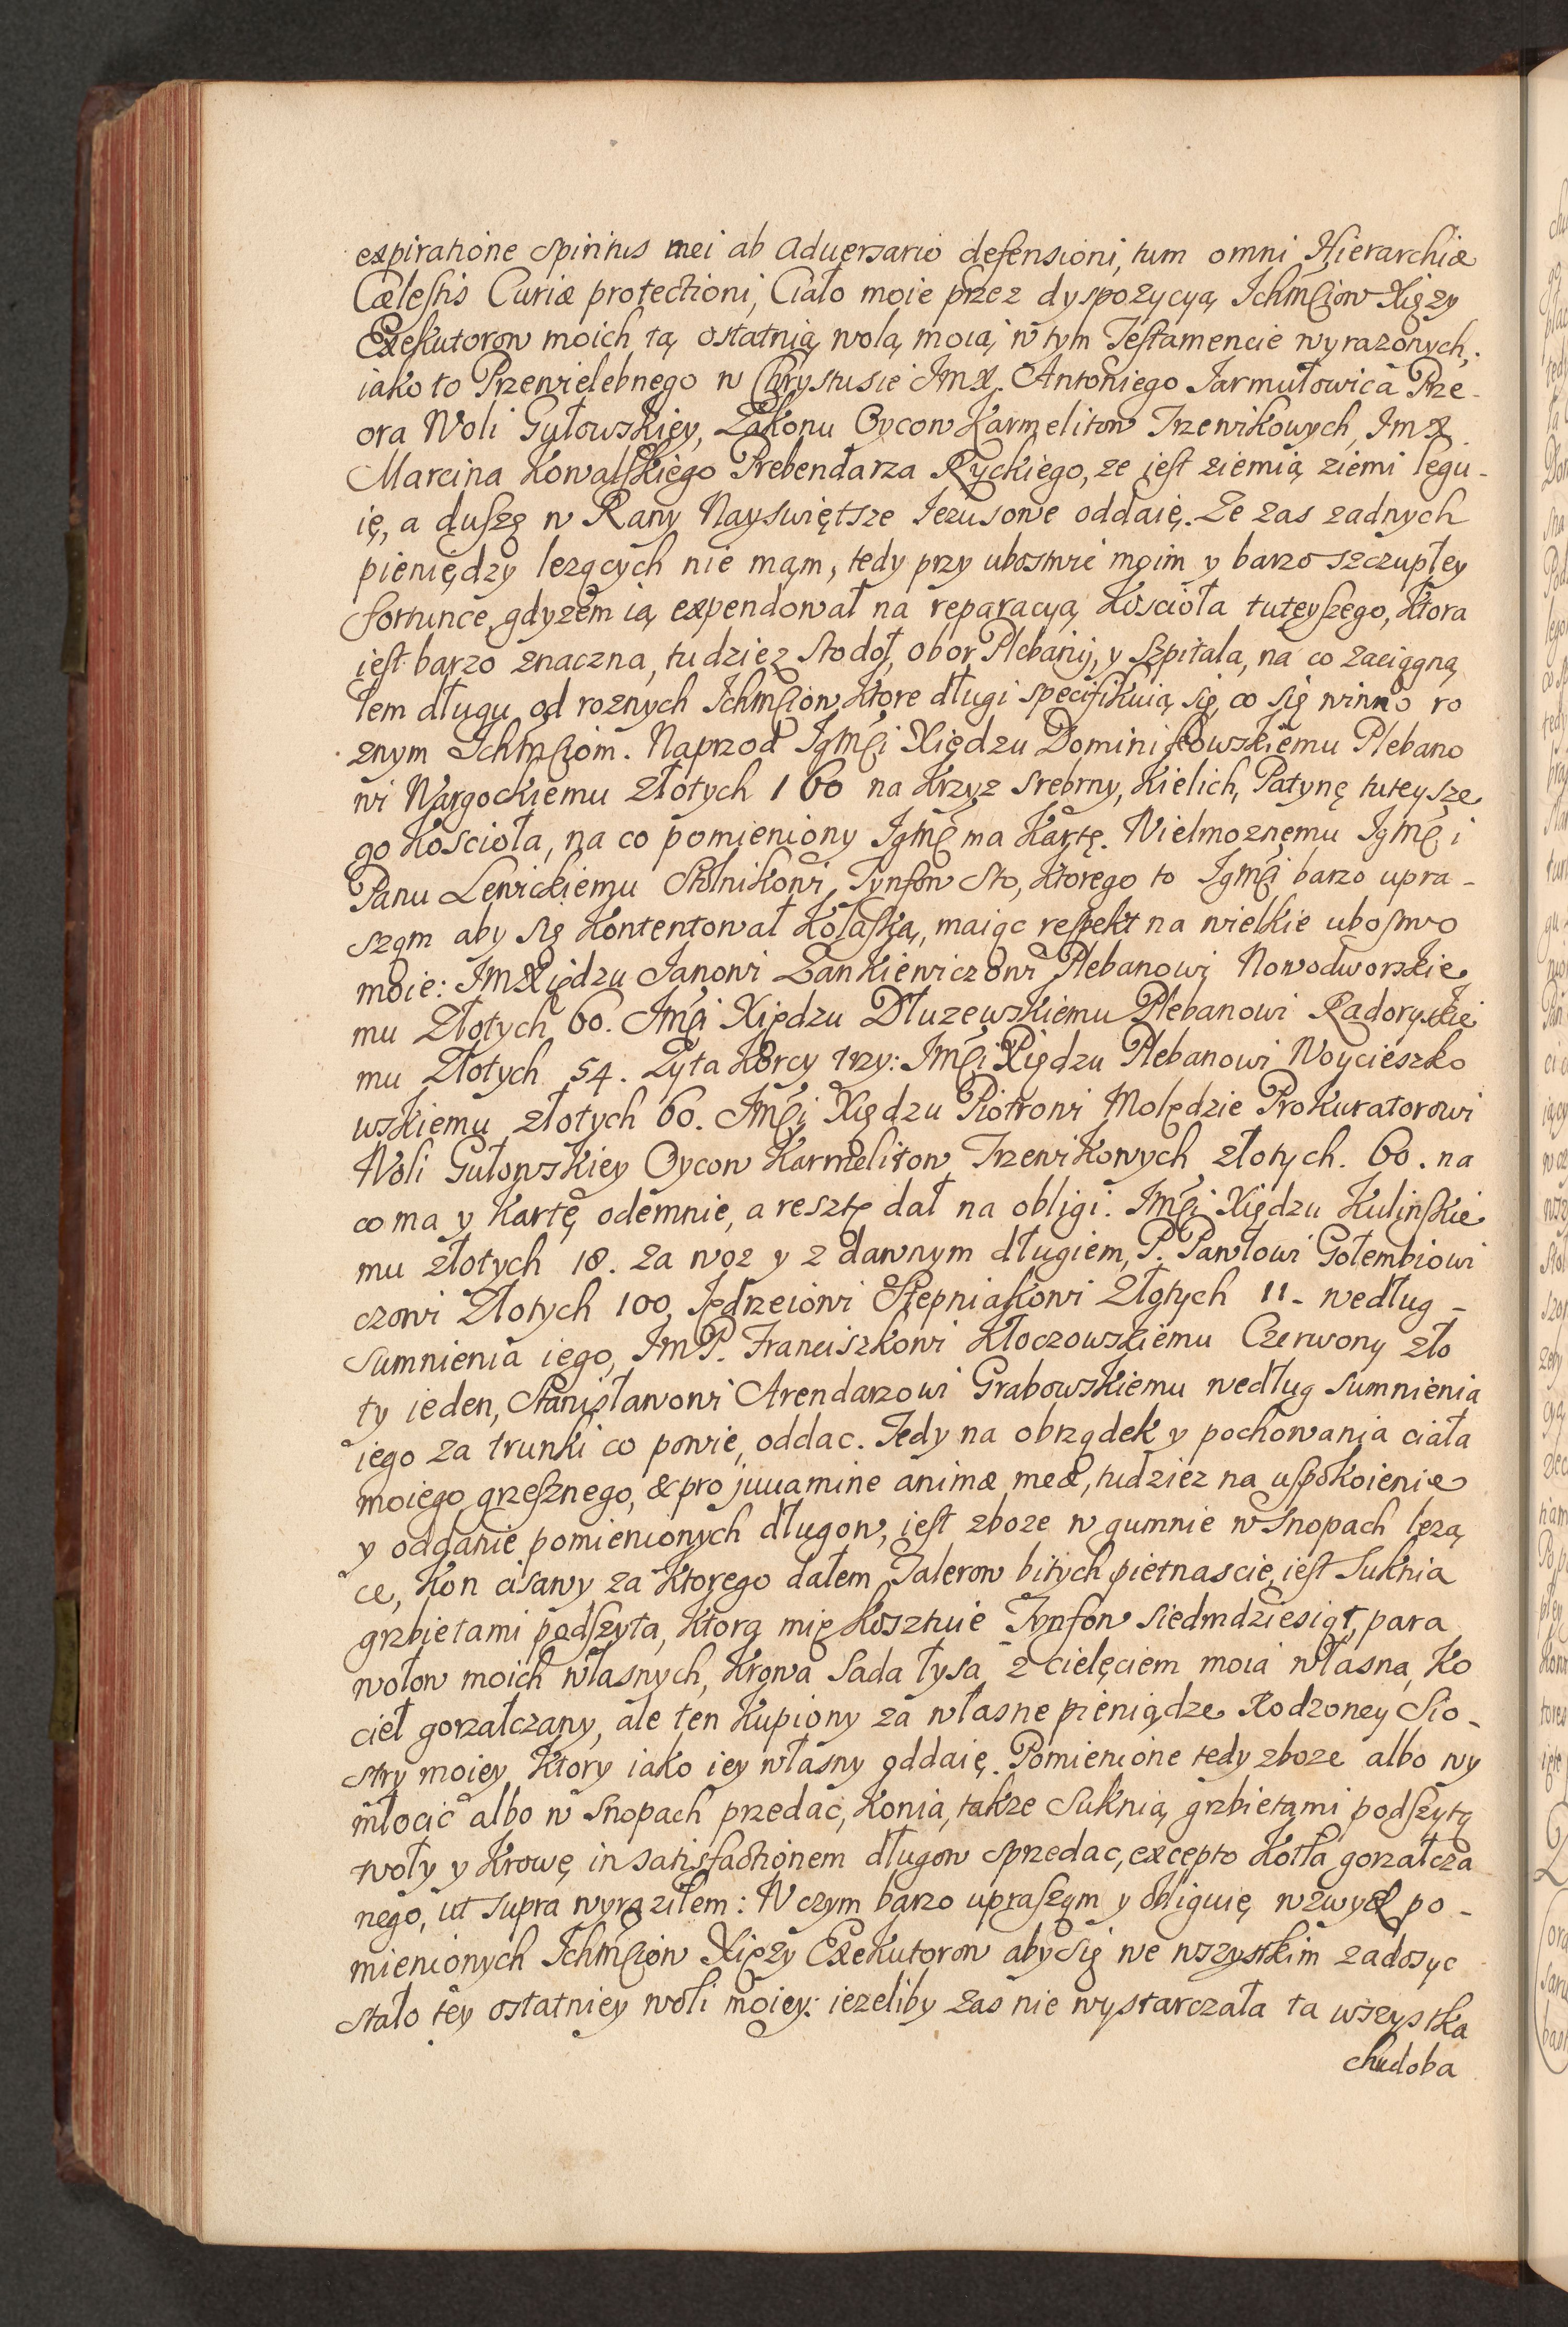 expiratione spiritus mei ab aduersario defensioni, tum omni Hierarchiæ
Cælestis Curiæ protectioni, Ciało moie przez dyspozycyą Ichmściow Xięży
Exekutorow moich tą ostatnią wolą moią w tym Testamencie wyrazonych,
iako to Przewielebnego w Chrystusie JmX. Antoniego Jarmułowica Prze-
ora Woli Gułowskiey, Zakonu Oycow Karmelitow Trzewikowych, JmX.
Marcina Kowalskiego Prebendarza Ryckiego, ze iest ziemią ziemi legu-
ię, a duszę w Rany Nayswiętsze Jezusowe oddaię. Ze zas zadnych
pieniędzy lezących nie mąm, tedy przy ubostwie moim y barzo szczupłey
fortunce, gdyzem ią expendował na reparacyą Koscioła tuteyszego, ktora
iest barzo znaczna, tudziez stodoł, obor, Plebanij, y Szpitala, na co zaciągną
łem długu od roznych Ichmściow, ktore długi specifikuią się, co się winno ro
znym Ichmściom. Naprzod Jgmści Xiędzu Dominikowskiemu Plebano
wi Wargockiemu złotych 160 na Krzyz srebrny, Kielich, Patynę tuteysze
go Koscioła, na co pomieniony Jgmść ma Kartę. Wielmoznemu Jgmści
Panu Lewickiemu Stolnikowi, Tynfow sto, ktorego to Jgmści barzo upra-
sząm aby się kontentował Kolaską, maiąc respekt na wielkie ubostwo
moie: JmXiędzu Janowi Zankiewiczowi Plebanowi Nowodworskie
mu Złotych 60. Jmści Xiędzu Dłuzewskiemu Plebanowi Radoryskie
mu Złotych 54. Zyta Korcy trzy: Jmści Xiędzu Plebanowi Woycieszko
wskiemu złotych 60. Jmści Xiędzu Piotrowi Molędzie Prokuratorowi
Woli Gułowskiey Oycow Karmelitow Trzewikowych złotych. 60. na
co ma y Kartę odemnie, a resztę dał na obligi. Jmści Xiędzu Kulinskie
mu złotych 18. za woz y z dawnym długiem, P. Pawłowi Gołembiowi
czowi Złotych 100, Jędrzeiowi Stepniakowi Złotych 11- według -
Sumnienia iego, JmP. Franciszkowi Kłoczowskiemu Czerwony zło
ty ieden, Stanisławowi Arendarzowi Grabowskiemu według Sumnienia
iego za trunki co powie, oddac. Tedy na obrządek y pochowania ciała
moiego grzesznego, & pro juuamine animæ meæ, tudziez na uspokoienie
y oddanie pomienionych długow, iest zboze w gumnie w snopach lezą
ce, Kon cisawy za ktorego dałem Talerow bitych pietnascie, iest Suknia
grzbietami podszyta, ktorą mię kosztuie Tynfow siedmdziesiąt, para
wołow moich własnych, Krowa Sada łysa z cielęciem moia własna, Ko
cieł gorzałczany, ale ten kupiony za własne pieniądze Rodzoney Sio-
stry moiey, ktory iako iey własny oddaię. Pomienione tedy zboze albo wy
młocić albo w snopach przedac, Konia, takze Suknią grzbietami podszytą
woły y Krowę in satisfactionem długow sprzedac, excepto Kotła gorzałcza
nego, ut supra wyraziłem: W czym barzo uprasząm y obliguię wzwyż po-
mienionych Ichmściow Xięży Exekutorow aby się we wszystkim zadosyc
stało tey ostatniey woli moiey: iezeliby zas nie wystarczała ta wszystka
chudoba